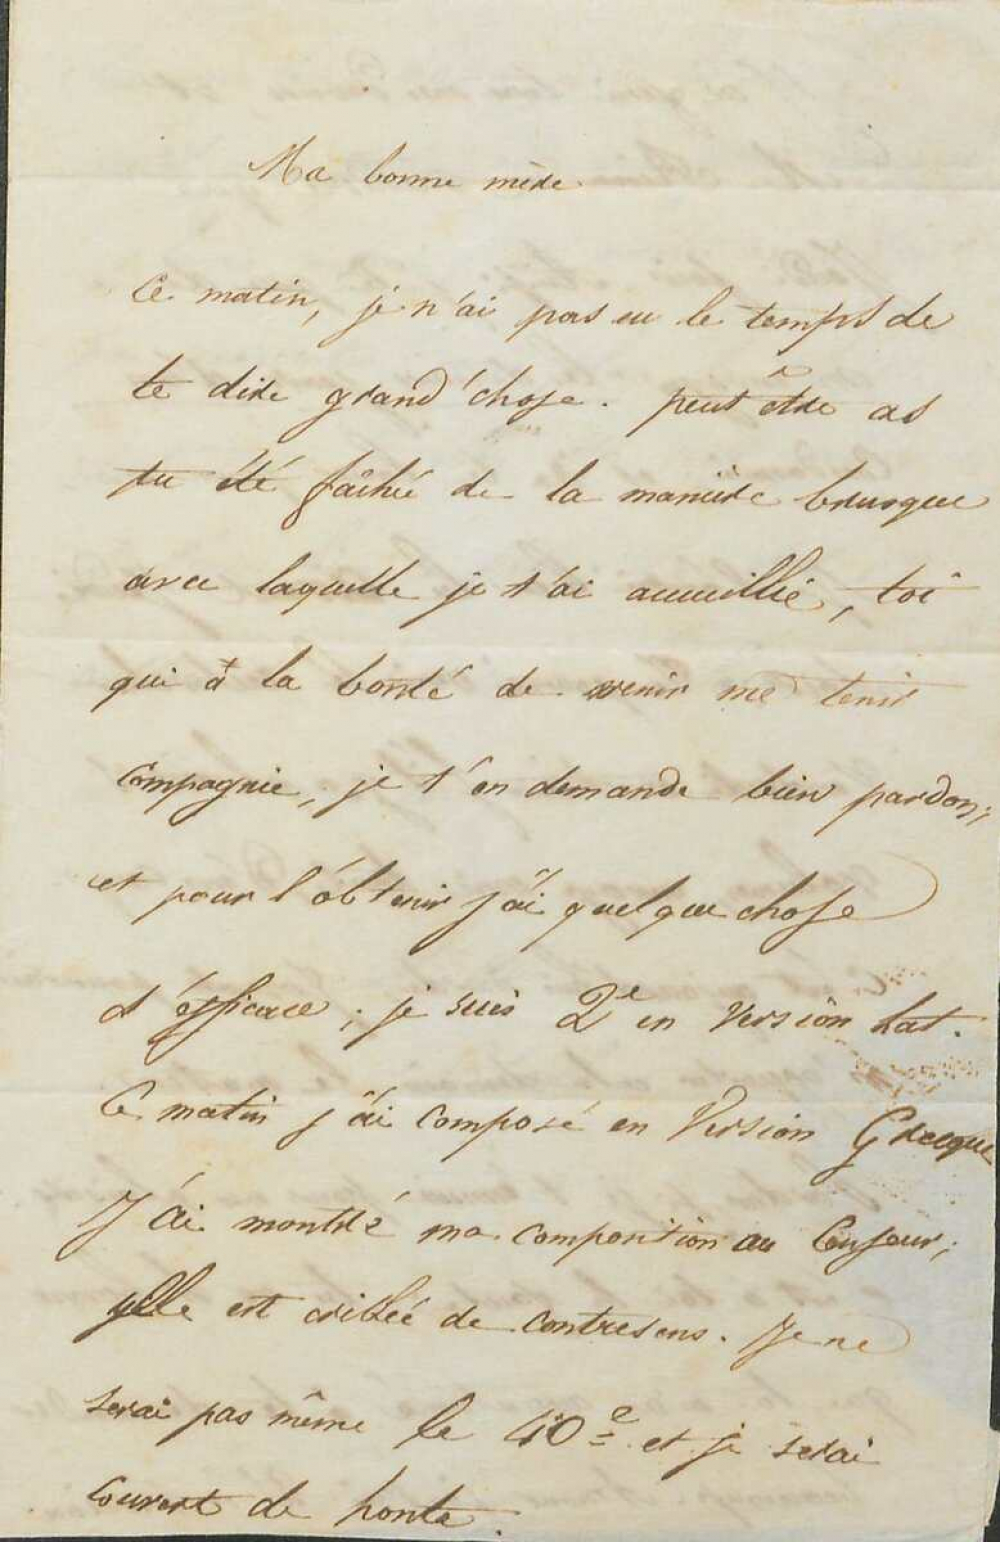 Ma bonne mère.
Ce matin, je n'ai pas eu le temps de
te dire grand'chose. peut être as
tu été fâchée de la manière brusque
avec laquelle je t'ai accueillie, toi
qui a la bonté de venir me tenir
compagnie, je t'en demande bien pardon;
et pour l'obtenir j'ai quelque chose
d'éfficace; je suis 2e en version lat.
Ce matin j'ai composé en Version Grecque
J'ai montré ma composition au Censeur;
elle est criblée de contresens. Je ne
serai pas même le 40e et je serai
couvert de honte.